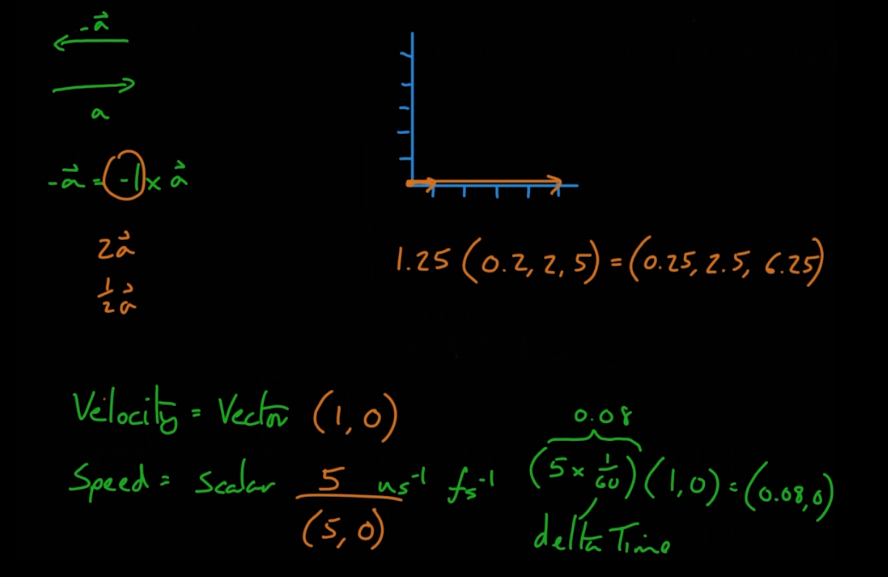 -a⃗
a
-a⃗ = -1 × a⃗
2a⃗
½a⃗
1.25 (0.2, 2, 5) = (0.25, 2.5, 6.25)
Velocity = Vector (1, 0)
0.08
Speed = Scalar 5 us⁻¹ fs⁻¹ (5 × 1/60) (1, 0) = (0.08, 0)
(5, 0)
delta Time